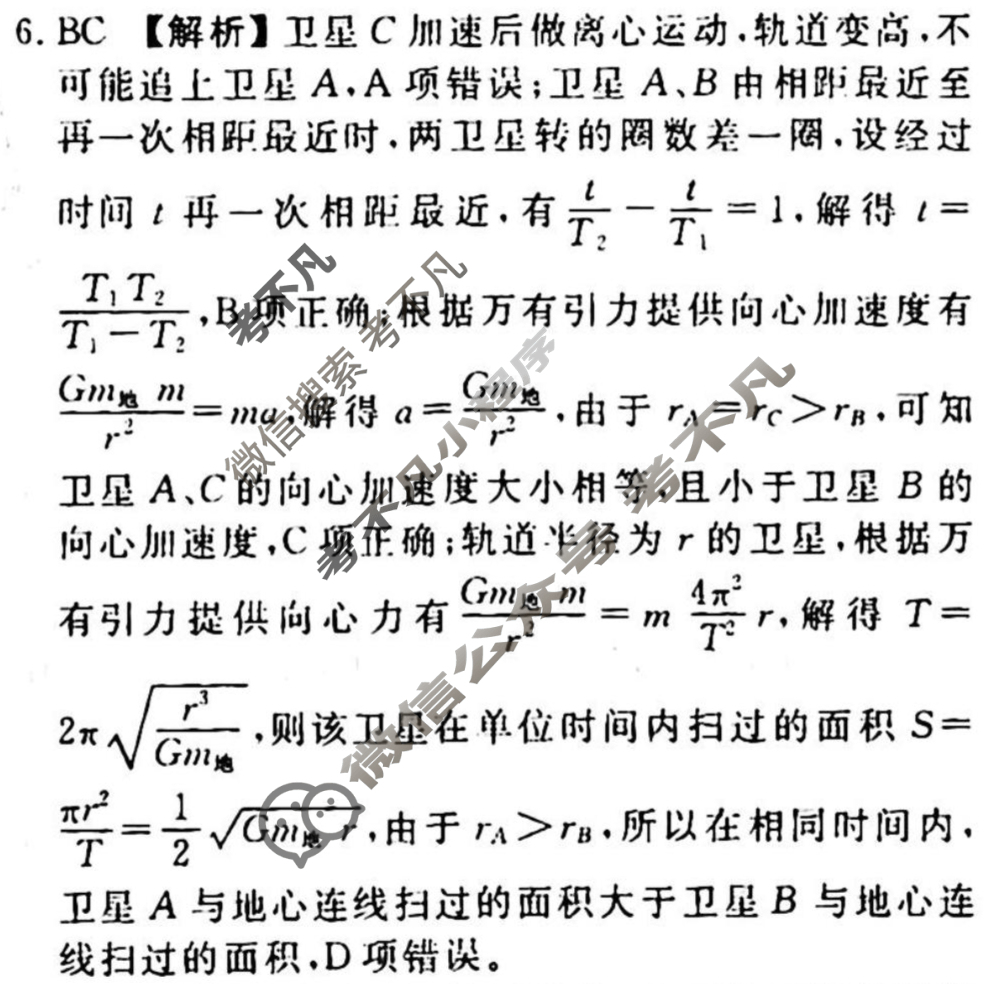 6. BC 【解析】卫星 C 加速后做离心运动,轨道变高,不
可能追上卫星 A,A 项错误;卫星 A、B 由相距最近至
再一次相距最近时,两卫星转的圈数差一圈,设经过
时间 t 再一次相距最近,有 t/T₂ − t/T₁ = 1,解得 t =
T₁T₂/(T₁−T₂),B 项正确;根据万有引力提供向心加速度有
Gm地 m/r² = ma,解得 a = Gm地/r²,由于 r_A = r_C > r_B,可知
卫星 A、C 的向心加速度大小相等,且小于卫星 B 的
向心加速度,C 项正确;轨道半径为 r 的卫星,根据万
有引力提供向心力有 Gm地 m/r² = m 4π²/T² r,解得 T =
2π√(r³/Gm地),则该卫星在单位时间内扫过的面积 S=
πr²/T = 1/2 √(Gm地 r),由于 r_A > r_B,所以在相同时间内,
卫星 A 与地心连线扫过的面积大于卫星 B 与地心连
线扫过的面积,D 项错误。
考不凡
微信搜索 考不凡
考不凡小程序
微信公众号 考不凡